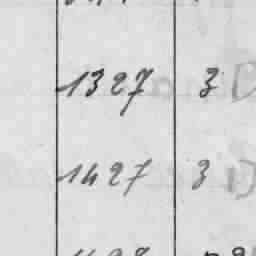 1327 3
1427 3